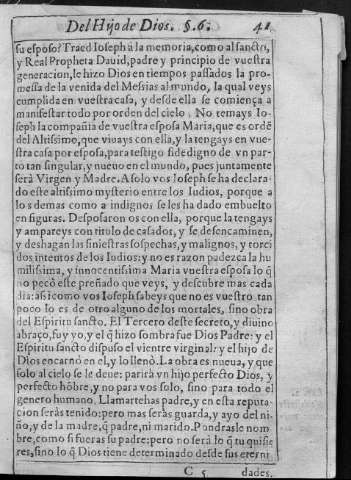 Del Hijo de Dios. §. 6. 41
su esposo? Traed Ioseph à la memoria, como al sancto,
y Real Propheta Dauid, padre y principio de vuestra
generacion, le hizo Dios en tiempos passados la pro-
messa de la venida del Messias al mundo, la qual veys
cumplida en vuestra casa, y desde ella se comiença a
manifestar todo por orden del cielo. No temays Io-
seph la compañia de vuestra esposa Maria, que es ordē
del Altissimo, que viuays con ella, y la tengays en vue-
stra casa por esposa, para testigo fidedigno de vn par-
to tan singular, y nueuo en el mundo, pues juntamente
serà Virgen y Madre. A solo vos Ioseph se ha declara-
do este altissimo mysterio entre los Iudios, porque a
los demas como a indignos se les ha dado embuelto
en figuras. Desposaron os con ella, porque la tengays
y ampareys con titulo de casados, y se desencaminen,
y deshagan las siniestras sospechas, y malignos, y torci
dos intentos de los Iudios: y no es razon padezca la hu
milissima, y innocentissima Maria vuestra esposa lo q̄
no pecò este preñado que veys, y descubre mas cada
dia: asi como vos Ioseph sabeys que no es vuestro, tan
poco lo es de otro alguno de los mortales, sino obra
del Espiritu sancto. El Tercero deste secreto, y diuino
abraço, fuy yo, y el q̄ hizo sombra fue Dios Padre: y el
Espiritu sancto dispuso el vientre virginal: y el hijo de
Dios encarnò en el, y lo llenò. La obra es nueua, y que
solo al cielo se le deue: parirà vn hijo perfecto Dios, y
perfecto hōbre, y no para vos solo, sino para todo el
genero humano. Llamartehas padre, y en esta reputa-
cion seràs tenido: pero mas seràs guarda, y ayo del ni-
ño, y de la madre, q̄ padre, ni marido. Pondrasle nom
bre, como si fueras su padre: pero no serà lo q̄ tu quisie
res, sino lo q̄ Dios tiene determinado desde sus eterni
C 5 dades.